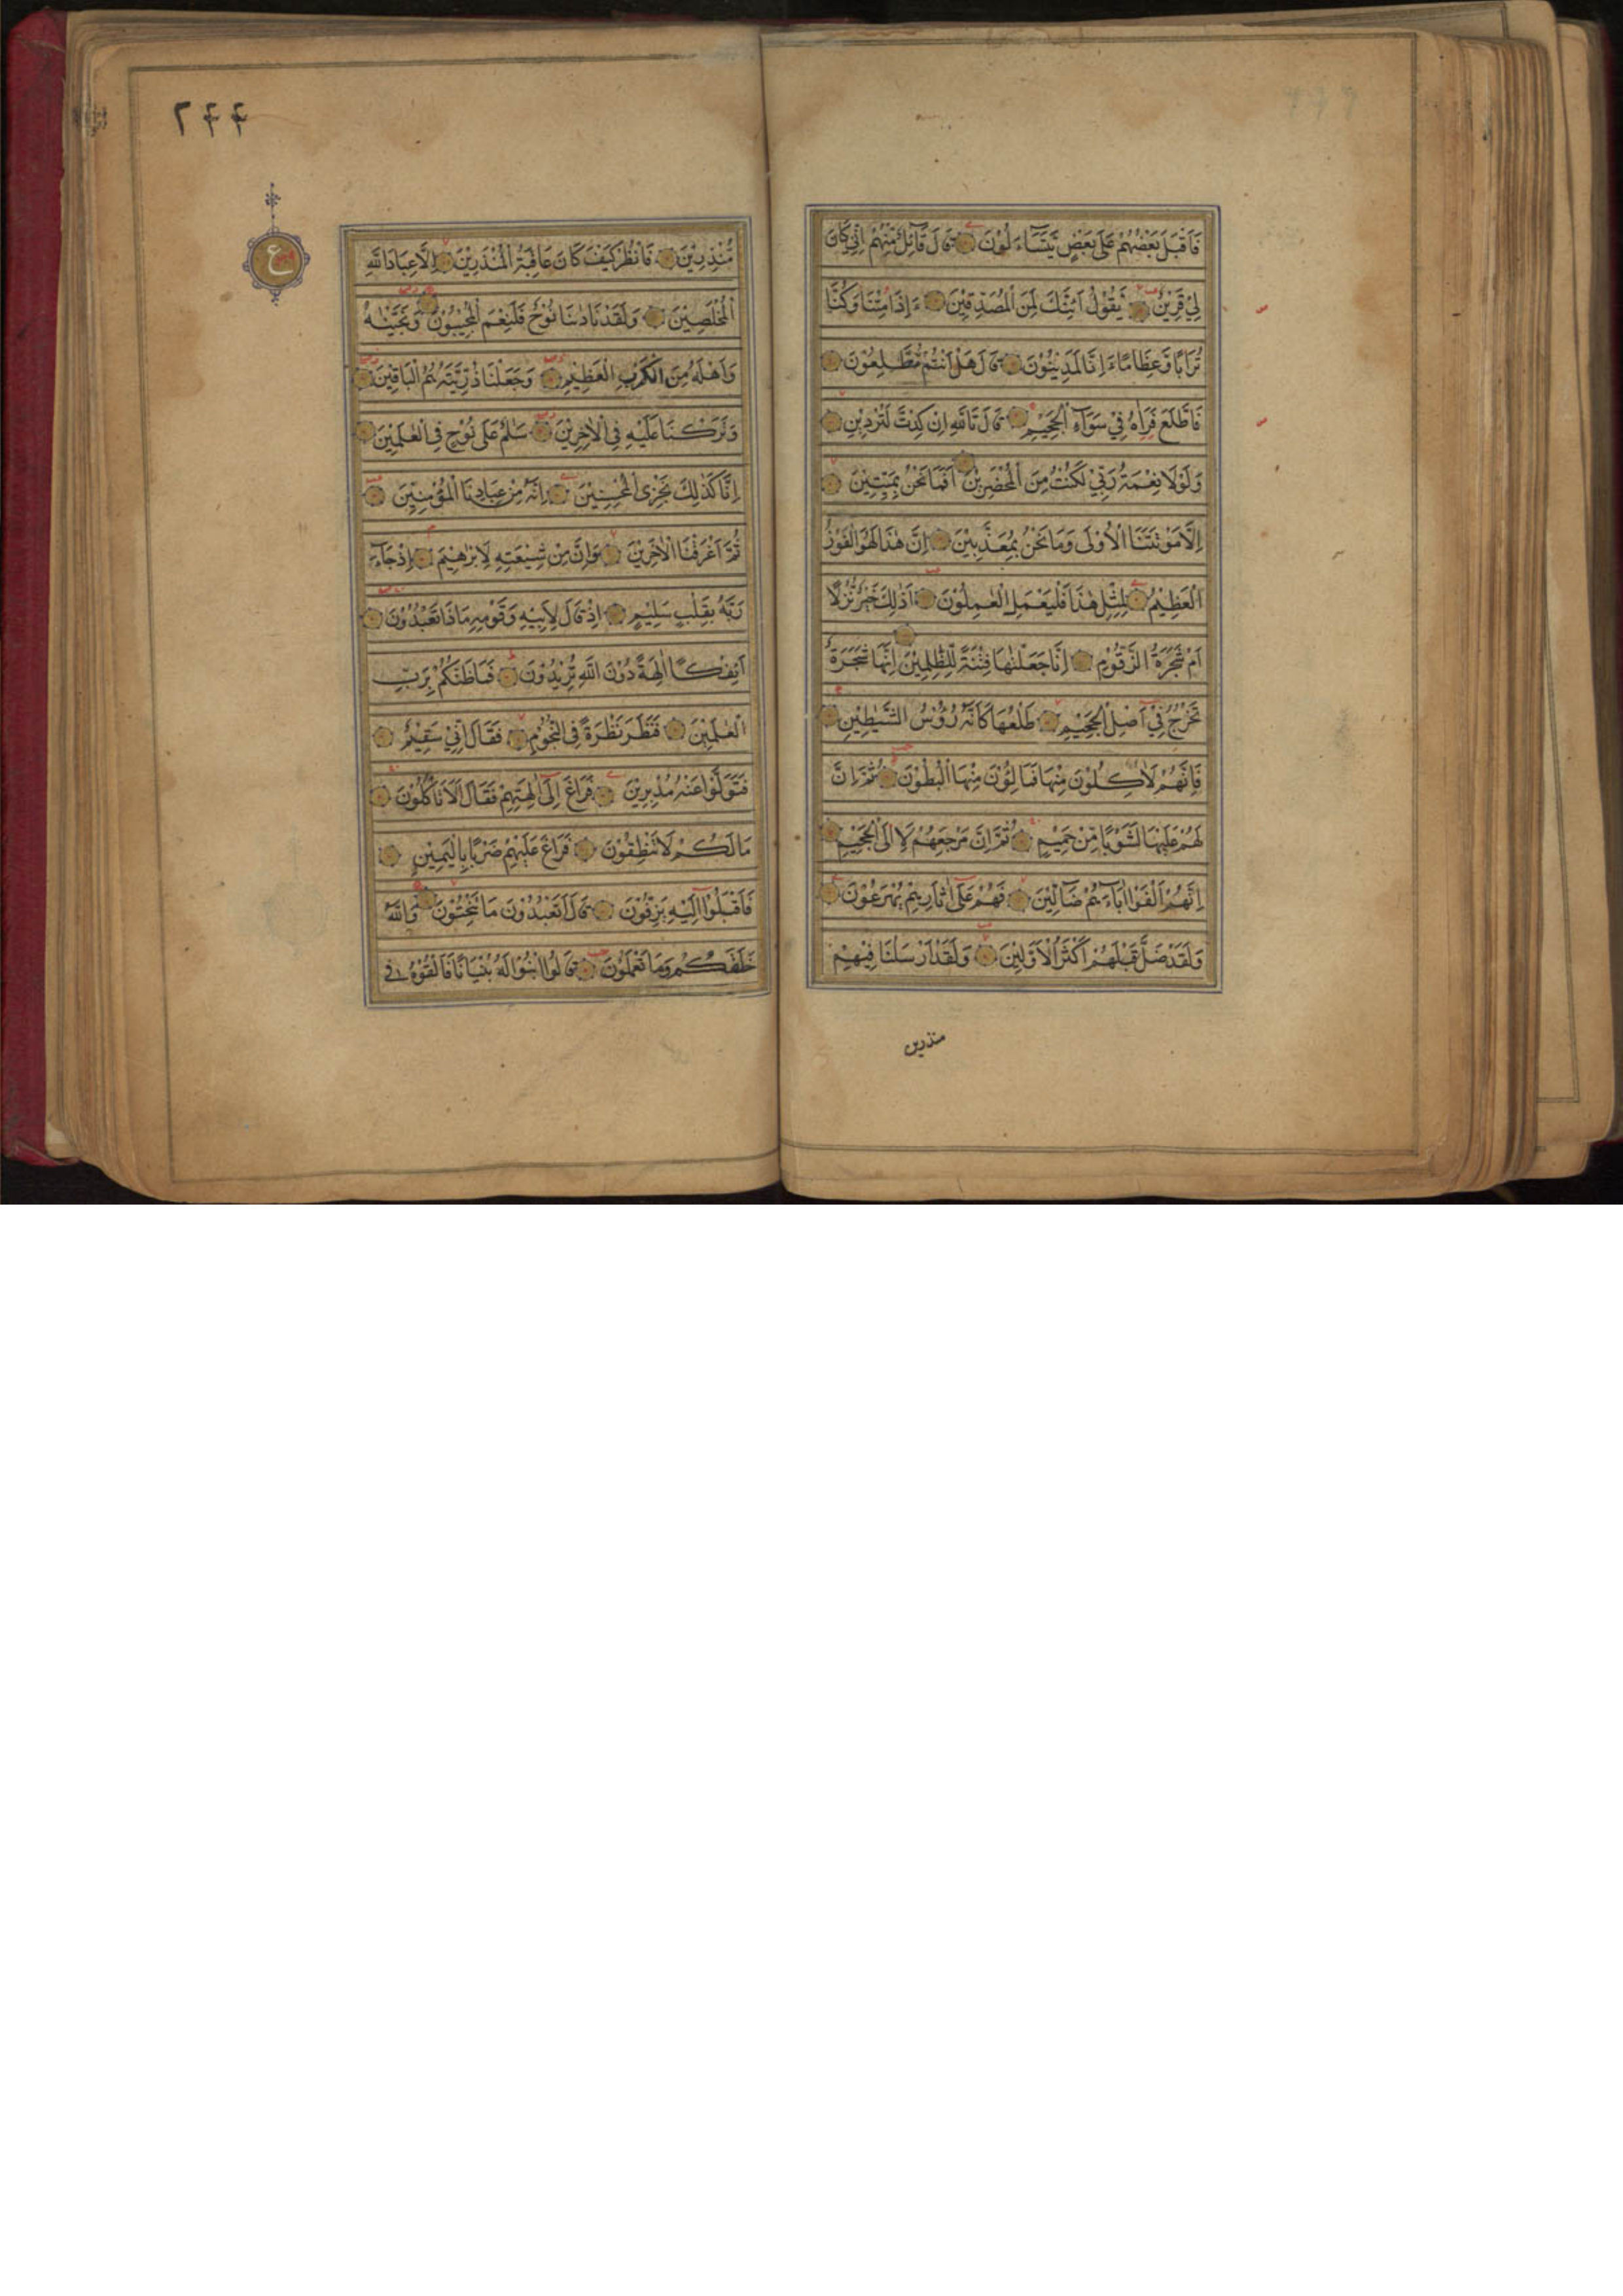 فَاَقْبَلَ بَعْضُهُمْ عَلٰى بَعْضٍ يَّتَسَآءَلُوْنَ قَالَ قَآئِلٌ مِّنْهُمْ اِنِّيْ كَانَ
لِيْ قَرِيْنٌ يَّقُوْلُ اَئِنَّكَ لَمِنَ الْمُصَدِّقِيْنَ ءَاِذَا مِتْنَا وَكُنَّا
تُرَابًا وَّعِظَامًا ءَاِنَّا لَمَدِيْنُوْنَ قَالَ هَلْ اَنْتُمْ مُّطَّلِعُوْنَ
فَاطَّلَعَ فَرَاٰهُ فِيْ سَوَآءِ الْجَحِيْمِ قَالَ تَاللّٰهِ اِنْ كِدْتَّ لَتُرْدِيْنِ
وَلَوْلَا نِعْمَةُ رَبِّيْ لَكُنْتُ مِنَ الْمُحْضَرِيْنَ اَفَمَا نَحْنُ بِمَيِّتِيْنَ
اِلَّا مَوْتَتَنَا الْاُوْلٰى وَمَا نَحْنُ بِمُعَذَّبِيْنَ اِنَّ هٰذَا لَهُوَ الْفَوْزُ
الْعَظِيْمُ لِمِثْلِ هٰذَا فَلْيَعْمَلِ الْعٰمِلُوْنَ اَذٰلِكَ خَيْرٌ نُّزُلًا
اَمْ شَجَرَةُ الزَّقُّوْمِ اِنَّا جَعَلْنٰهَا فِتْنَةً لِّلظّٰلِمِيْنَ اِنَّهَا شَجَرَةٌ
تَخْرُجُ فِيْ اَصْلِ الْجَحِيْمِ طَلْعُهَا كَاَنَّهٗ رُؤُسُ الشَّيٰطِيْنِ
فَاِنَّهُمْ لَاٰكِلُوْنَ مِنْهَا فَمَالِـُٔوْنَ مِنْهَا الْبُطُوْنَ ثُمَّ اِنَّ
لَهُمْ عَلَيْهَا لَشَوْبًا مِّنْ حَمِيْمٍ ثُمَّ اِنَّ مَرْجِعَهُمْ لَاِ۟الَى الْجَحِيْمِ
اِنَّهُمْ اَلْفَوْا اٰبَآءَهُمْ ضَآلِّيْنَ فَهُمْ عَلٰى اٰثَارِهِمْ يُهْرَعُوْنَ
وَلَقَدْ ضَلَّ قَبْلَهُمْ اَكْثَرُ الْاَوَّلِيْنَ وَلَقَدْ اَرْسَلْنَا فِيْهِمْ
منذرين
۲۴۴
ع
مُّنْذِرِيْنَ فَانْظُرْ كَيْفَ كَانَ عَاقِبَةُ الْمُنْذَرِيْنَ اِلَّا عِبَادَ اللّٰهِ
الْمُخْلَصِيْنَ وَلَقَدْ نَادٰنَا نُوْحٌ فَلَنِعْمَ الْمُجِيْبُوْنَ وَنَجَّيْنٰهُ
وَاَهْلَهٗ مِنَ الْكَرْبِ الْعَظِيْمِ وَجَعَلْنَا ذُرِّيَّتَهٗ هُمُ الْبَاقِيْنَ
وَتَرَكْنَا عَلَيْهِ فِي الْاٰخِرِيْنَ سَلٰمٌ عَلٰى نُوْحٍ فِي الْعٰلَمِيْنَ
اِنَّا كَذٰلِكَ نَجْزِي الْمُحْسِنِيْنَ اِنَّهٗ مِنْ عِبَادِنَا الْمُؤْمِنِيْنَ
ثُمَّ اَغْرَقْنَا الْاٰخَرِيْنَ وَاِنَّ مِنْ شِيْعَتِهٖ لَاِبْرٰهِيْمَ اِذْ جَآءَ
رَبَّهٗ بِقَلْبٍ سَلِيْمٍ اِذْ قَالَ لِاَبِيْهِ وَقَوْمِهٖ مَاذَا تَعْبُدُوْنَ
اَئِفْكًا اٰلِهَةً دُوْنَ اللّٰهِ تُرِيْدُوْنَ فَمَا ظَنُّكُمْ بِرَبِّ
الْعٰلَمِيْنَ فَنَظَرَ نَظْرَةً فِي النُّجُوْمِ فَقَالَ اِنِّيْ سَقِيْمٌ
فَتَوَلَّوْا عَنْهُ مُدْبِرِيْنَ فَرَاغَ اِلٰى اٰلِهَتِهِمْ فَقَالَ اَلَا تَاْكُلُوْنَ
مَا لَكُمْ لَا تَنْطِقُوْنَ فَرَاغَ عَلَيْهِمْ ضَرْبًا بِالْيَمِيْنِ
فَاَقْبَلُوْا اِلَيْهِ يَزِفُّوْنَ قَالَ اَتَعْبُدُوْنَ مَا تَنْحِتُوْنَ وَاللّٰهُ
خَلَقَكُمْ وَمَا تَعْمَلُوْنَ قَالُوا ابْنُوْا لَهٗ بُنْيَانًا فَاَلْقُوْهُ فِي